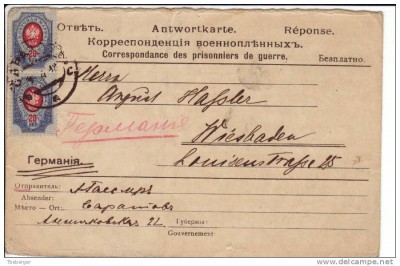 Отвѣтъ. Antwortkarte. Réponse.
Корреспонденція военноплѣнныхъ.
Correspondance des prisonniers de guerre. Безплатно.
20
20
Herrn
August Hassler
Германія
Wiesbaden
Louisenstrasse 25
Германія.
Отправитель:
Absender:
Мѣсто – Ort: Саратовъ
22 Губернія:
Gouvernement
Todamgr
delcampe.net